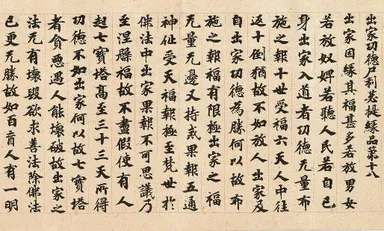 出家功德尸利苾提緣品第十八
出家因緣其福甚多若放男女
若放奴婢若聽人民若自己
身出家入道者功德无量布
施之報十世受福六天人中往
返十倒猶故不如放人出家及
自出家功德為勝何以故布
施之報福有限極出家之福
无量无邊又持戒果報五通
神仙受天福報極至梵世於
佛法中出家果報不可思議乃
至涅槃福故不盡假使有人
起七寶塔高至三十三天所得
功德不如出家何以故七寶塔
者貪惡愚人能壞破故出家之
法无有壞毀欲求善法除佛法
已更无勝故如百盲人有一明